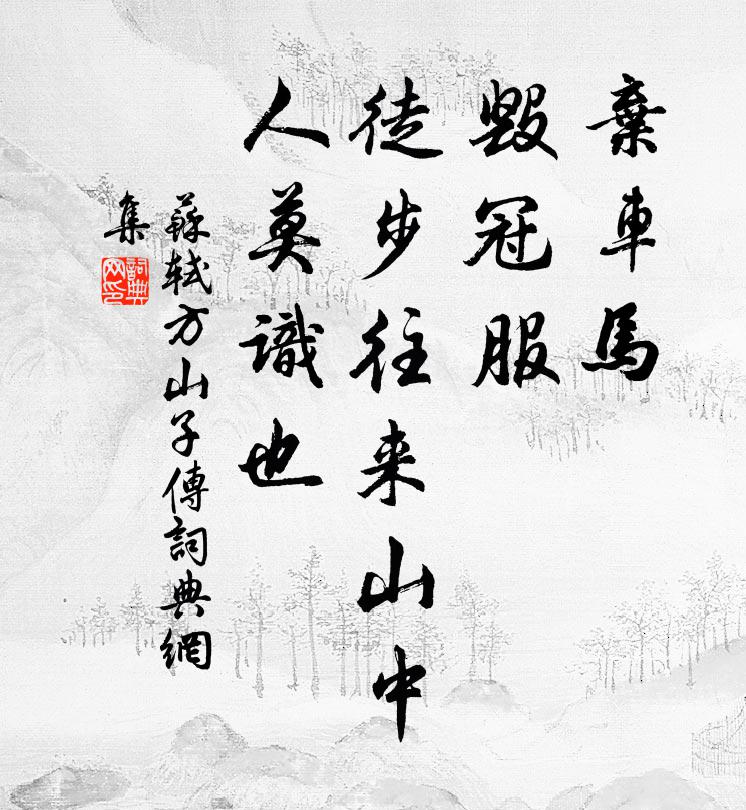 棄車馬
毀冠服
徒步往来山中
人莫識也
蘇軾方山子傳詞典網
集
詞典
网印